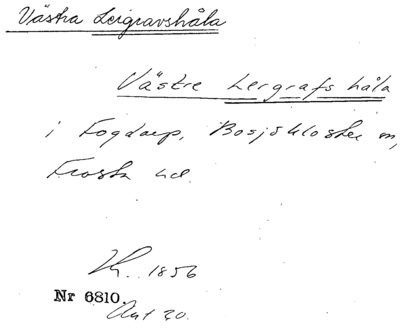 Västra Lergravshåla
Västre Lergrafs håla
i Fogdarp, Bosjökloster sn,
Frosta hd.
1856
Nr 6810.
Akt 20.